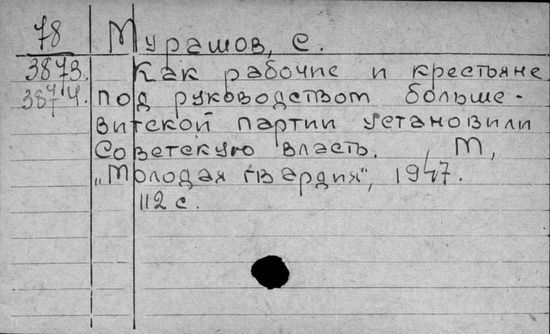 78 Мурашов, С.
3873. Как рабочие и крестьяне
под руководством больше-
витской партии установили
Советскую власть. М,
„Молодая гвардия", 1947.
112 с.